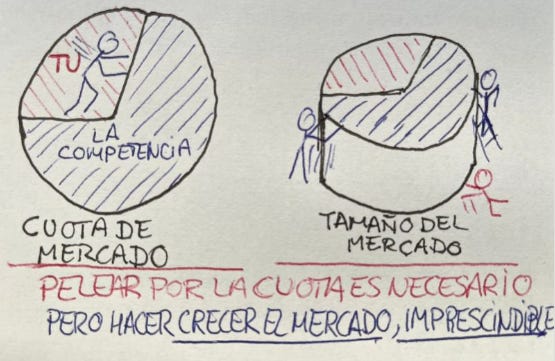 TU
LA
COMPETENCIA
CUOTA DE
MERCADO
TAMAÑO DEL
MERCADO
PELEAR POR LA CUOTA ES NECESARIO
PERO HACER CRECER EL MERCADO, IMPRESCINDIBLE